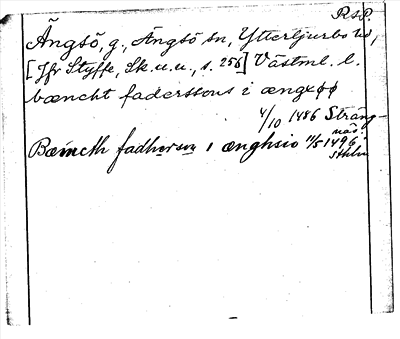 RsP.
Ängsö, g., Ängsö sn, Ytterljurbo hd,
[Jfr Styffe, Sk. u. u., s. 256] Västml. l.
bæncht faderssons i ængxøø
4/10 1486 Sträng-
näs.
Bæincth fadhorsun i ænghsio 11/5 1496.
Sthlm